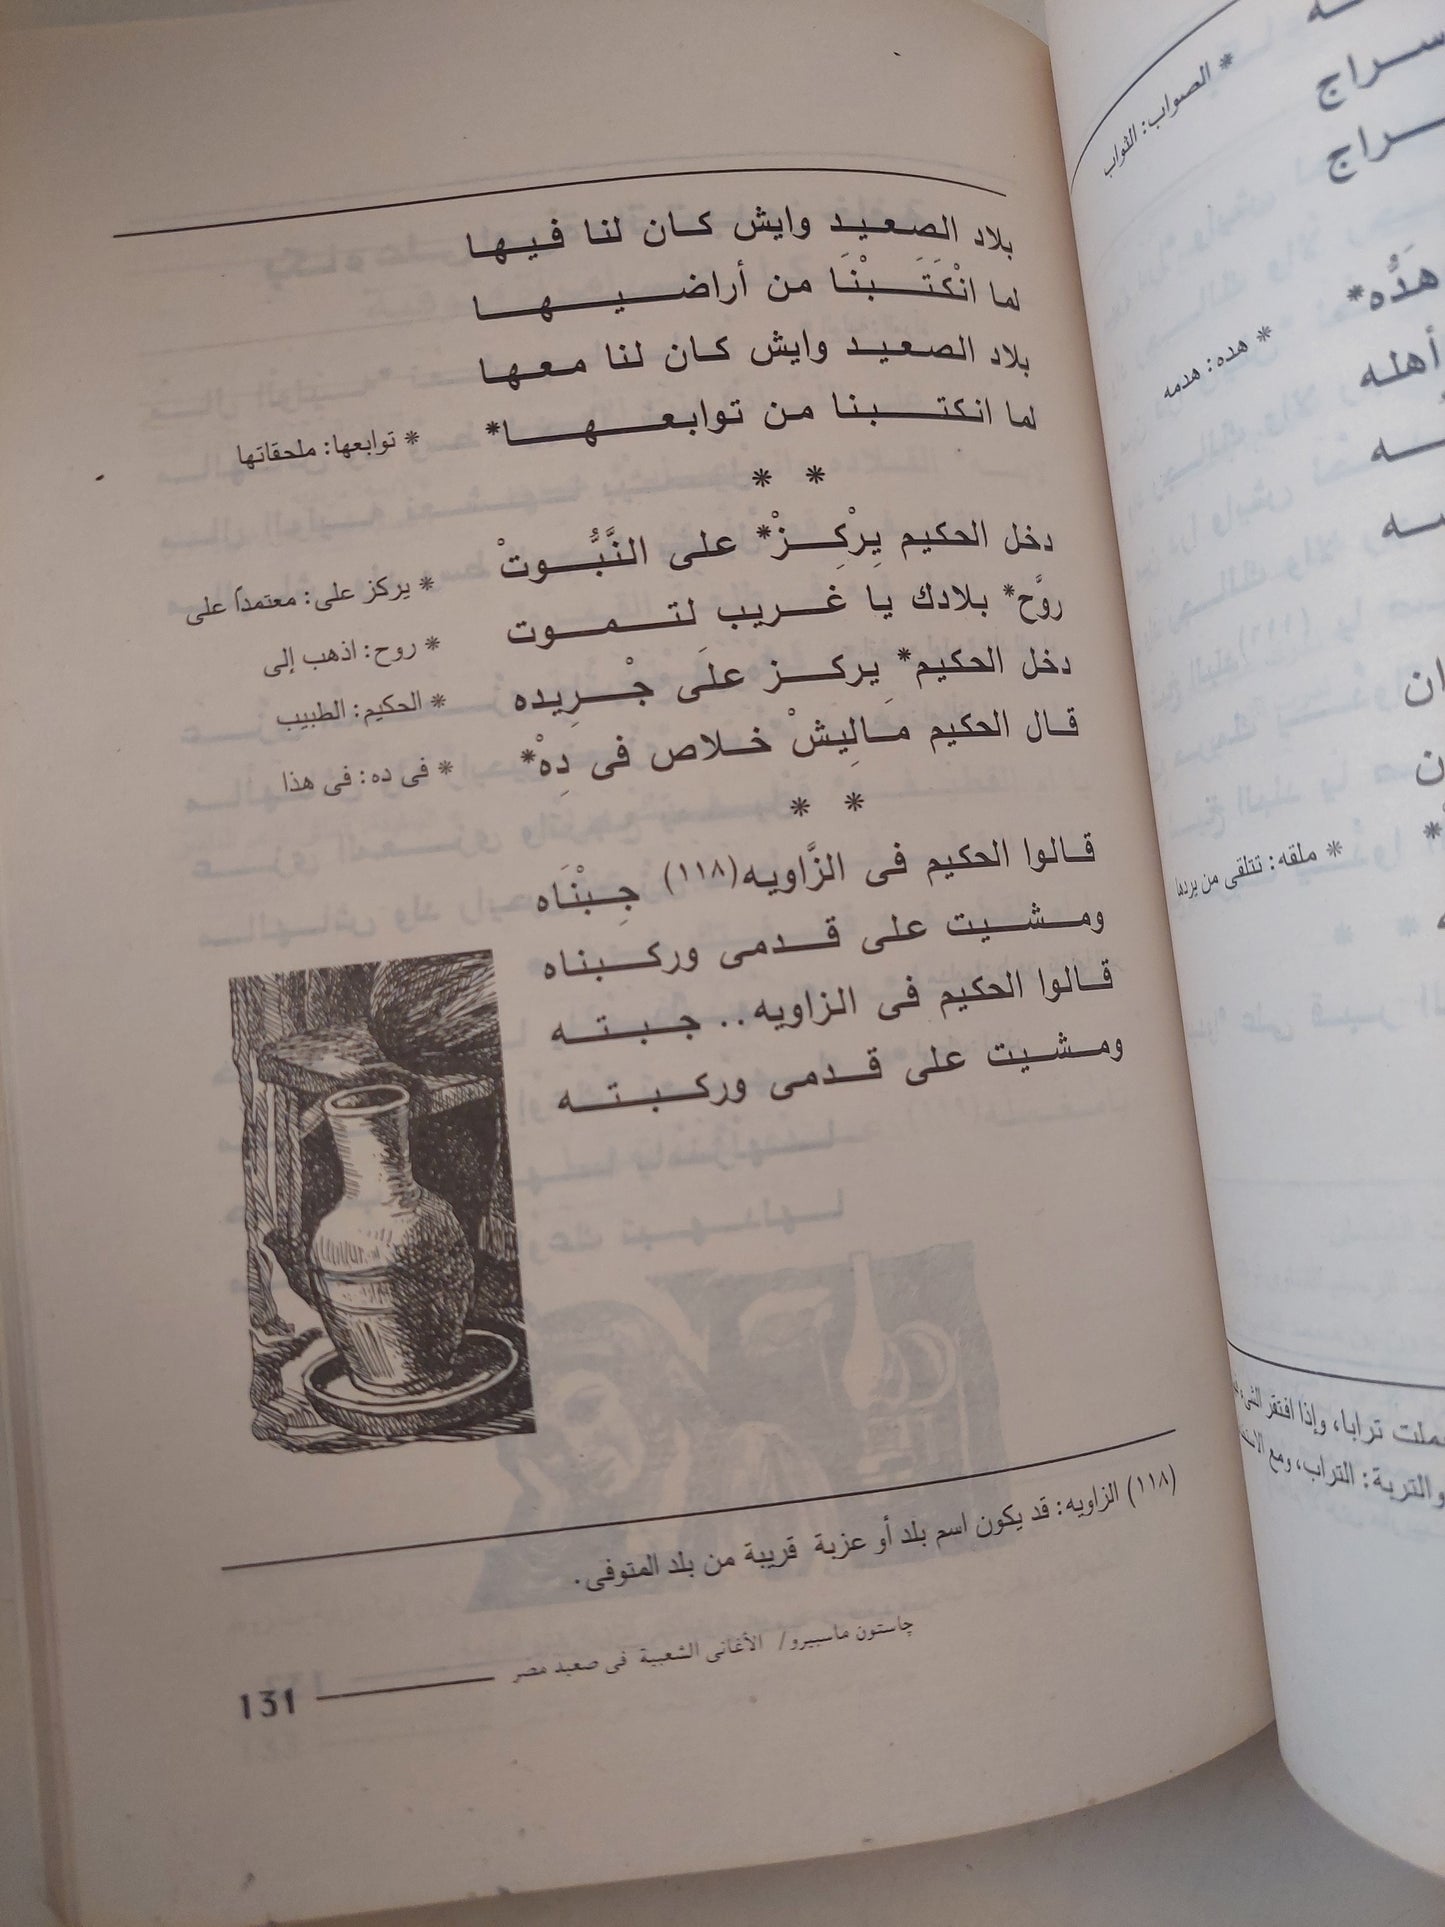 بلاد الصعيد وايش كان لنا فيها
لما انْكَتَبْنَا من أراضيها
بلاد الصعيد وايش كان لنا معها
لما انكتبنا من توابعها*
* توابعها: ملحقاتها
* *
دخل الحكيم يِرْكِزْ* على النَّبُّوتْ
* يركز على: معتمداً على
روَّح* بلادك يا غريب لتموت
* روح: اذهب إلى
دخل الحكيم* يركز علَى جْرِيده
* الحكيم: الطبيب
قال الحكيم مَالِيشْ خلاص فى دِهْ*
* فى ده: فى هذا
* *
قالوا الحكيم فى الزَّاويه(١١٨) جِبْنَاه
ومشيت على قدمى وركبناه
قالوا الحكيم فى الزاويه.. جبته
ومشيت على قدمى وركبته
(١١٨) الزاويه: قد يكون اسم بلد أو عزبة قريبة من بلد المتوفى.
چاستون ماسبيرو/ الأغانى الشعبية فى صعيد مصر
131
* الصواب: الثواب
سراج
راج
هَدُّه*
* هده: هدمه
أهله
* ملقه: تتلقى من يردها
ملت ترابا، وإذا افتقر الشىء
والتربة: التراب، ومع